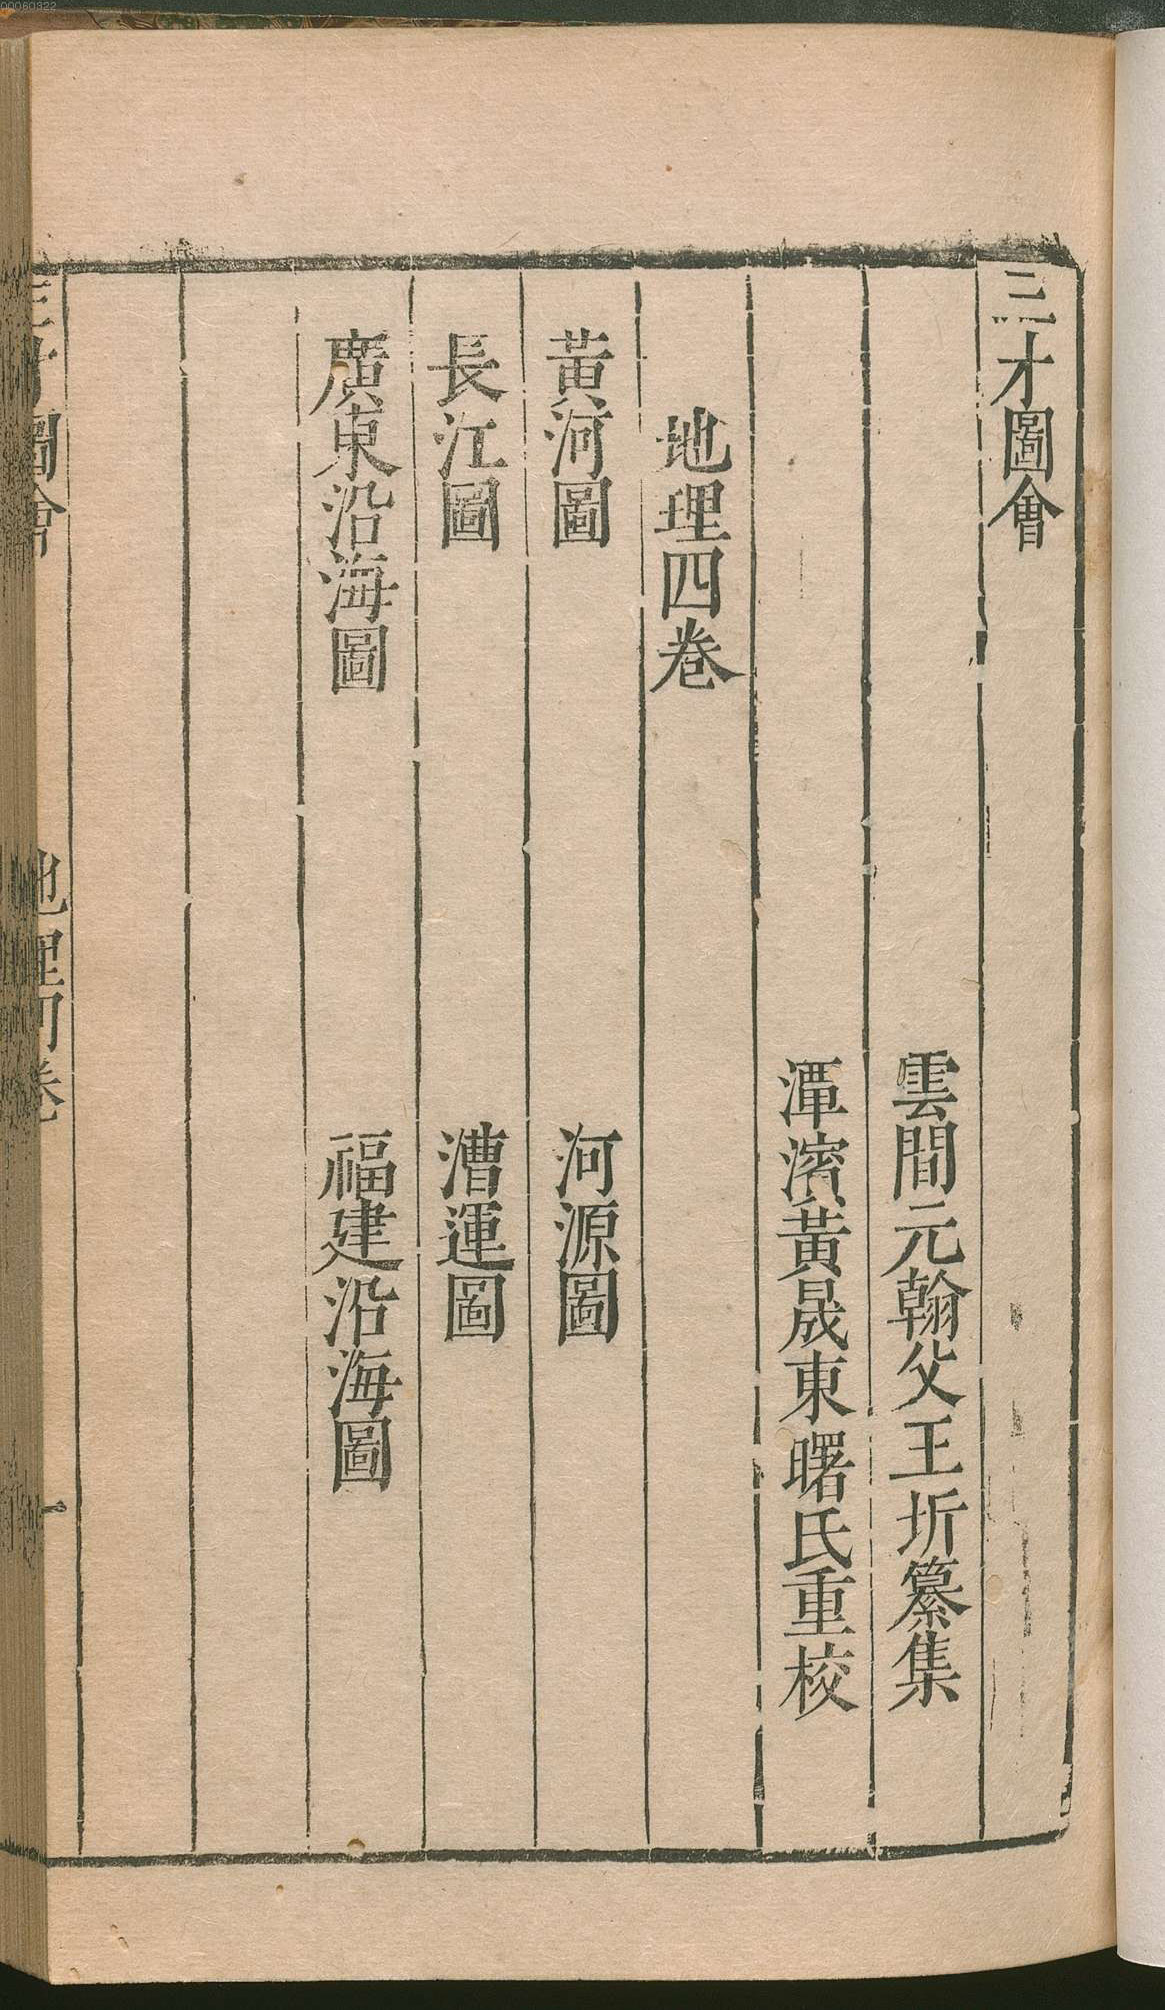 三才圖會
雲間元翰父王圻纂集
潭濱黃晟東曙氏重校
地理四卷
黃河圖
河源圖
長江圖
漕運圖
廣東沿海圖
福建沿海圖
三才圖會
地理四卷
一
00060322